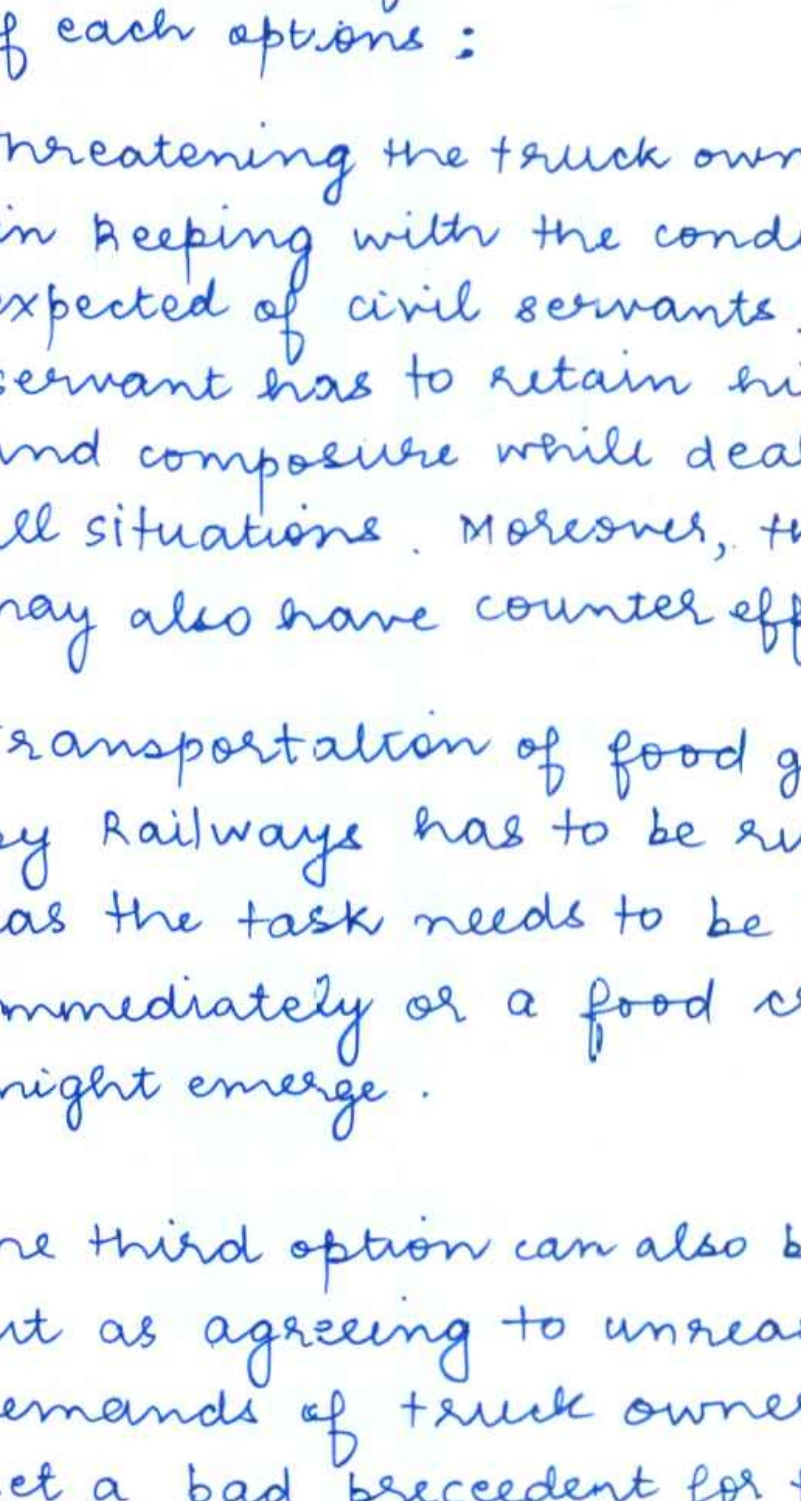 f each options :
hreatening the truck own
in keeping with the cond
expected of civil servants.
servant has to retain hi
and composure while deal
ll situations. Moreover, th
may also have counter eff
ransportation of food g
by Railways has to be ru
as the task needs to be
mmediately or a food cr
might emerge.
he third option can also b
ut as agreeing to unrea
emands of truck owne
et a bad preceedent for t